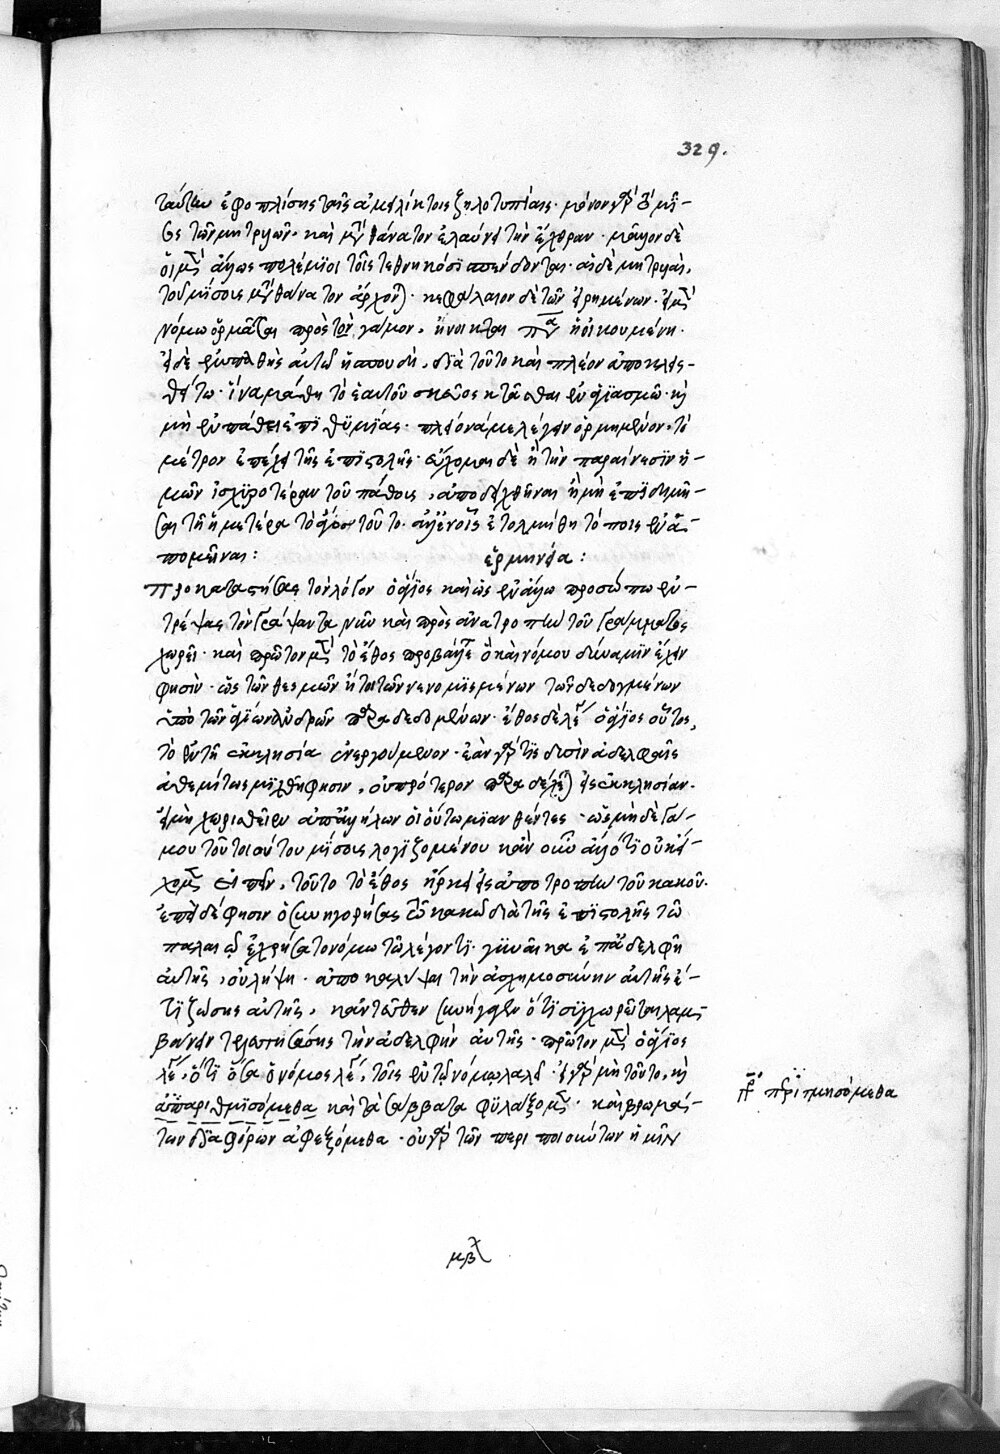 329.
ταύτην ἐφοπλίσης ταῖς ἀμειλίκτοις ζηλοτυπίαις· μόνον γὰρ τὸ μῖ-
σος τῶν μητρυιῶν· καὶ μετὰ θάνατον ἐλαύνει τὴν ἔχθραν· μᾶλλον δὲ
οἱ μὲν ἄλλως πολέμιοι τοῖς τεθνηκόσι σπένδονται· αἱ δὲ μητρυιαὶ,
τοῦ μίσους μετὰ θάνατον ἄρχονται· κεφάλαιον δὲ τῶν εἰρημένων· εἰ μὲν
νόμω ὁρμᾶται πρὸς τὸν γάμον, ἤνοικται πᾶσα ἡ οἰκουμένη·
εἰ δὲ ἐμπαθὴς αὐτῶ ἡ σπουδὴ, διὰ τοῦτο καὶ πλέον ἀποκλεισ-
θήτω· ἵνα μάθη τὸ ἑαυτοῦ σκεῦος κτᾶσθαι ἐν ἁγιασμῶ· καὶ
μὴ ἐν πάθει ἐπιθυμίας· πλείονά με λέγειν ὁρμημένον, τὸ
μέτρον ἐπέχει τῆς ἐπιστολῆς· εὔχομαι δὲ ἢ τὴν παραίνεσιν ἡ-
μῶν ἰσχυροτέραν τοῦ πάθους, ἀποδειχθῆναι ἢ μὴ ἐπιδημῆ-
σαι τῆ ἡμετέρα τὸ ἄγος τοῦτο· ἀλλ' ἐν οἷς ἐτολμήθη τόποις ἐνα-
πομεῖναι:
ἑρμηνεία:
Προκαταστήσας τὸν λόγον ὁ ἅγιος καὶ ὡς ἐν ἄλλω προσώπω ἐν-
τρέψας τὸν γράψαντα νῦν καὶ πρὸς ἀνατροπὴν τοῦ γράμματος
χωρεῖ· καὶ πρῶτον μὲν τὸ ἔθος προβάλλεται ὃ καὶ νόμου δύναμιν ἔχειν
φησὶν· ὡς τῶν θεσμῶν ἤτοι τῶν νενομισμένων τῶν δεδογμένων
ὑπὸ τῶν ἁγίων ἀνδρῶν παραδεδομένων· ἔθος δὲ λέγει ὁ ἅγιος οὗτος,
τὸ ἐν τῆ ἐκκλησία ἐνεργούμενον· ἐὰν γάρ τις δυσὶν ἀδελφαῖς
ἀθεμίτως μιχθῆ φησιν, οὐ πρότερον παραδέχεται εἰς ἐκκλησίαν·
εἰ μὴ χωρισθεῖεν ἀπ' ἀλλήλων οἱ οὕτω μιανθέντες· ὡς μηδὲ γά-
μου τοῦ τοιούτου μίσους λογιζομένου κἂν οὖν ἄλλό τι οὐκ εἴ-
χομεν εἰπεῖν, τοῦτο τὸ ἔθος ἤρκει εἰς ἀποτροπὴν τοῦ κακοῦ.
ἐπεὶ δέ φησιν ὁ συνηγορήσας τῶ κακῶ διὰ τῆς ἐπιστολῆς τῶ
πάλαι ᾧ ἐχρήσατο νόμω τῶ λέγοντι· γυναῖκα ἐπ' ἀδελφῆ
αὐτῆς, οὐ λήψη· ἀποκαλύψαι τὴν ἀσχημοσύνην αὐτῆς ἔ-
τι ζώσης αὐτῆς, κἀντεῦθεν συνῆγεν ὅτι συγχωρεῖται λαμ-
βάνειν τελευτησάσης τὴν ἀδελφὴν αὐτῆς· πρῶτον μὲν ὁ ἅγιος
λέγει, ὅτι ὅσα ὁ νόμος λέγει, τοῖς ἐν τῶ νόμω λαλεῖ· εἰ γὰρ μὴ τοῦτο, καὶ
ἀπαριθμησόμεθα καὶ τὰ σάββατα φυλάξομεν· καὶ βρωμά-
των διαφόρων ἀφεξόμεθα· οὐ γὰρ τῶν περιποιούντων ἡμῖν
περιτμησόμεθα
μβ